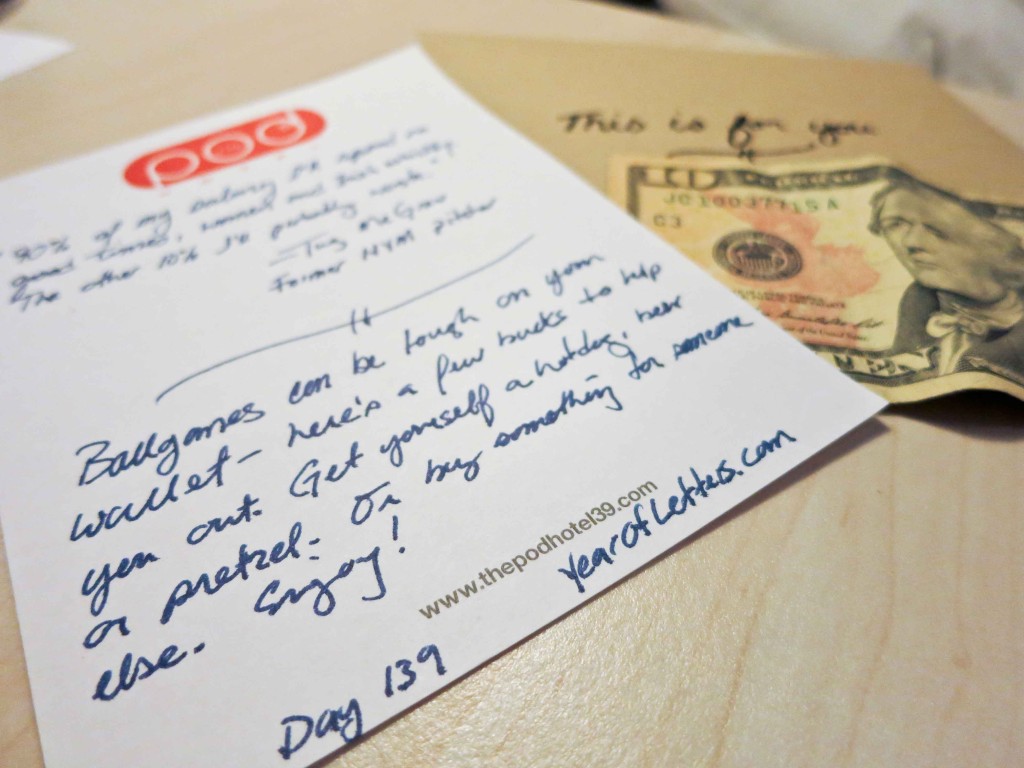 pod
"90% of my salary I'll spend on
good times, women and Irish whiskey.
The other 10% I'll probably waste."
- Tug McGraw
Former NYM pitcher
Ballgames can be tough on your
wallet - here's a few bucks to help
you out. Get yourself a hotdog, beer
or pretzel. Or buy something for someone
else. Enjoy!
www.thepodhotel39.com
YearofLetters.com
Day 139
This is for you
JC10037715A
C3